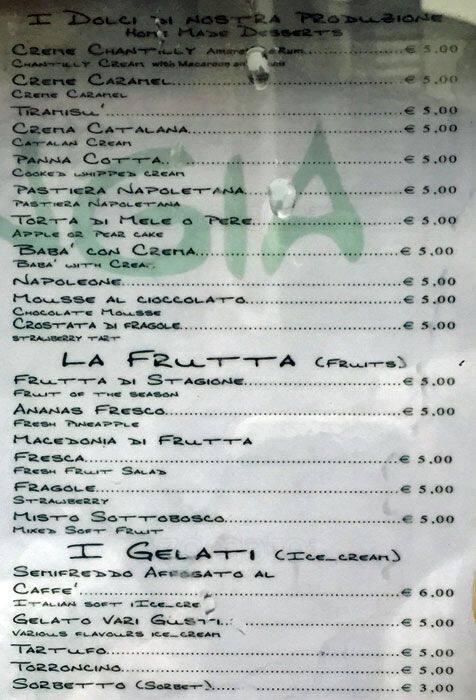 I Dolci di nostra Produzione
Home Made Desserts
Creme Chantilly Amaretto e Rum € 5,00
Chantilly Cream with Macaroon and
Creme Caramel € 5,00
Creme Caramel
Tiramisu' € 5,00
Crema Catalana € 5,00
Catalan Cream
Panna Cotta € 5,00
Cooked whipped cream
Pastiera Napoletana € 5,00
Pastiera Napoletana
Torta di Mele o Pere € 5,00
Apple or Pear cake
Baba' con Crema € 5,00
Baba' with
Napoleone € 5,00
Mousse al cioccolato € 5,00
Chocolate Mousse
Crostata di fragole € 5,00
strawberry tart
NGIA
La Frutta (Fruits)
Frutta di Stagione € 5,00
Fruit of the season
Ananas Fresco € 5,00
Fresh Pineapple
Macedonia di Frutta
Fresca € 5,00
Fresh Fruit Salad
Fragole € 5,00
Strawberry
Misto Sottobosco € 5,00
Mixed Soft Fruit
I Gelati (Ice_cream)
Semifreddo Affogato al
Caffe' € 6,00
Italian soft
Gelato Vari Gusti € 5,00
Various flavours ice_cream
Tartufo € 5,00
Torroncino € 5,00
Sorbetto (Sorbet) € 3,00